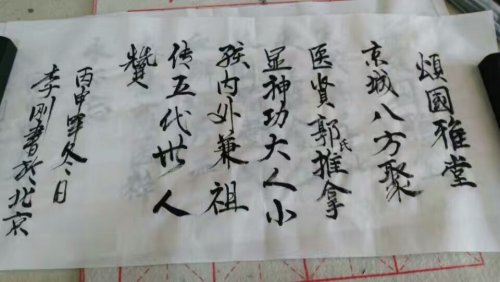 頌國雅堂
京城八方聚
医贤郭氏推拿
显神功大人小
孩内外兼祖
传五代世人
贊
丙申年冬日
李刚書於北京